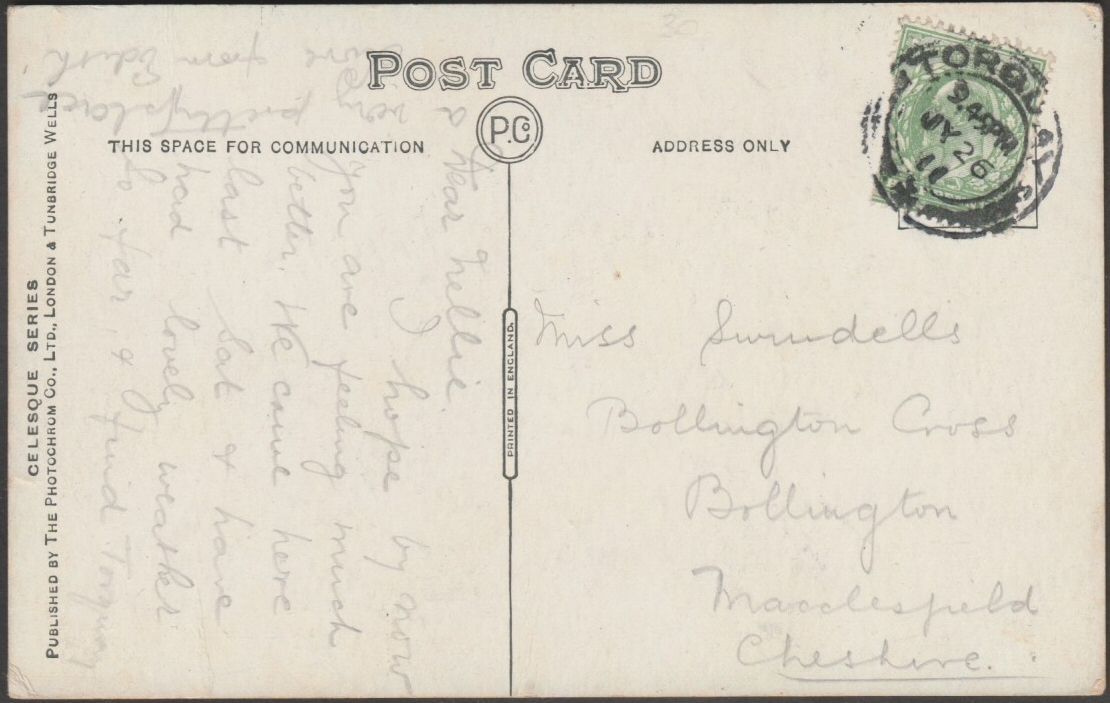 POST CARD
P.Co
THIS SPACE FOR COMMUNICATION
ADDRESS ONLY
TORQUAY
9.45PM
JY 26
11
Dear Nellie.
I hope by now
you are feeling much
better. We came here
last Sat & have
had lovely weather
so far, & find Torquay
a very pretty place
love from Edith
Miss Swindells
Bollington Cross
Bollington
Macclesfield
Cheshire.
PRINTED IN ENGLAND.
CELESQUE SERIES
PUBLISHED BY THE PHOTOCHROM CO., LTD., LONDON & TUNBRIDGE WELLS
30